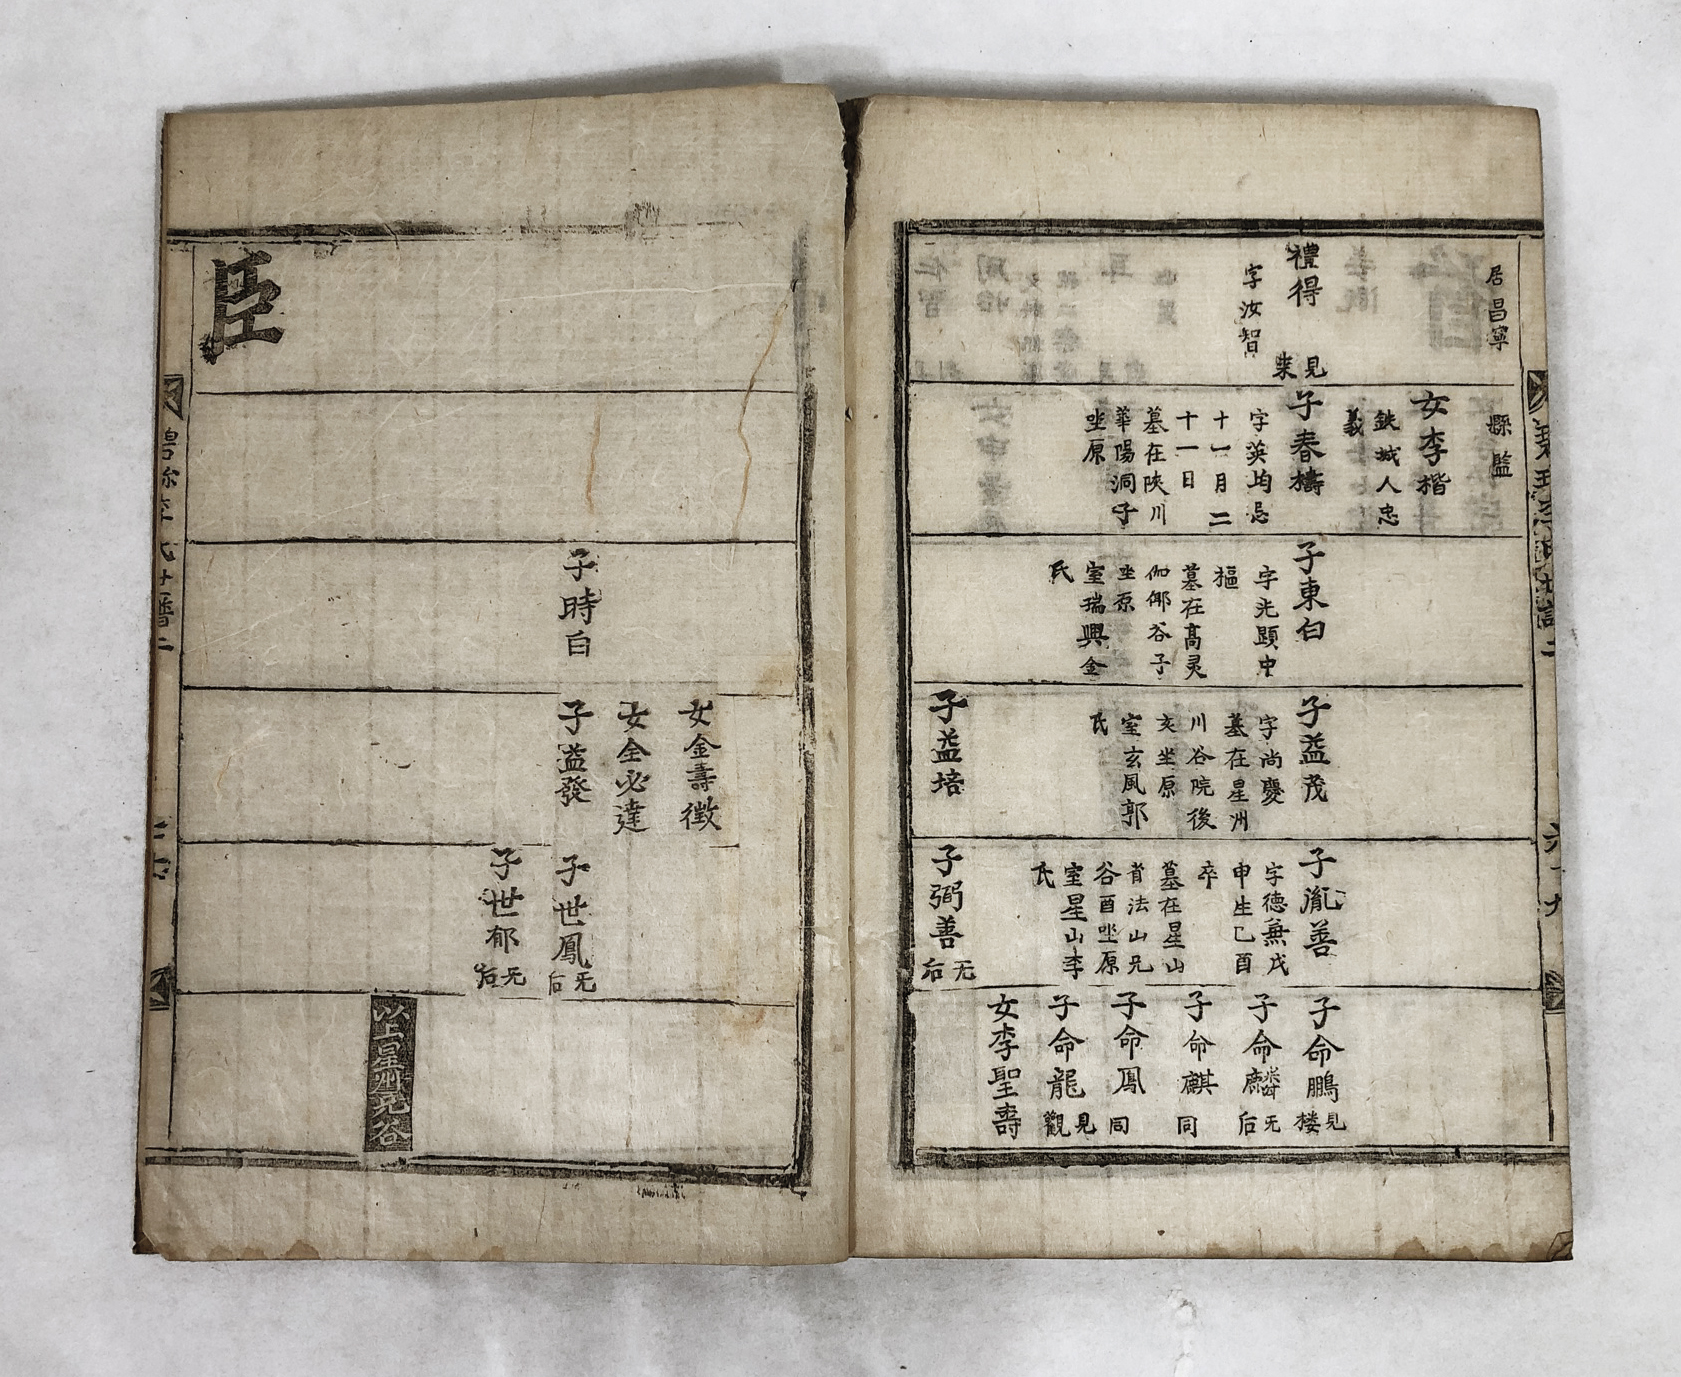 居昌寧
禮得
見
來
字汝智
縣監
女李楷
鉄城人忠
義
子春檮
字英均忌
十一月二
十一日
墓在陜川
華陽洞子
坐原
子東白
字光顕中
樞
墓在高灵
伽倻谷子
坐原
室瑞興金
氏
子益茂
字尚慶
墓在星州
川谷院後
亥坐原
室玄風郭
氏
子益培
子胤善
字德兼戊
申生乙酉
卒
墓在星山
省法山兄
谷酉坐原
室星山李
氏
子弼善
无
后
子命鵬
見
楼
子命麟
无
后
子命麒
同
子命鳳
同
子命龍
見
觀
女李聖壽
碧珍李氏世譜二
六十九
子時白
女金壽徴
女全必達
子益發
子世鳳
无
后
子世郁
无
后
以上星州兄谷
臣
碧珍李氏世譜二